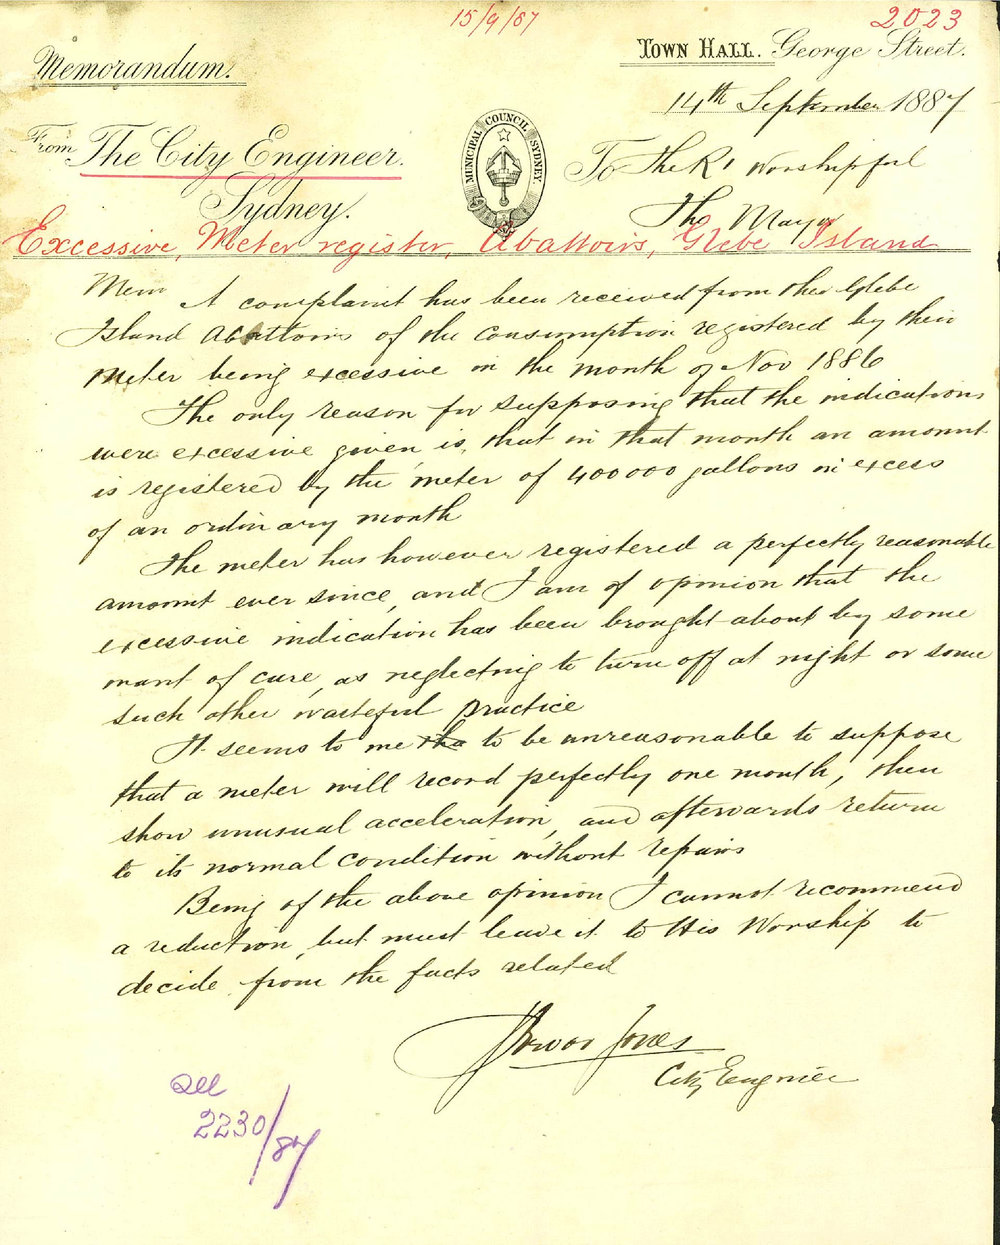 15/9/87
2023
Memorandum.
TOWN HALL. George Street.
14th September 1887
From The City Engineer.
Sydney.
MUNICIPAL COUNCIL SYDNEY.
To The Rt Worshipful
The Mayor
Excessive, Meter register, Abattoirs, Glebe Island
Mem A complaint has been received from the Glebe
Island Abattoirs of the consumption registered by their
meter being excessive in the month of Nov 1886
The only reason for supposing that the indications
were excessive given is, that in that month an amount
is registered by the meter of 400000 gallons in excess
of an ordinary month
The meter has however registered a perfectly reasonable
amount ever since, and I am of opinion that the
excessive indication has been brought about by some
want of care, as neglecting to turn off at night or some
such other wasteful practice
It seems to me tha to be unreasonable to suppose
that a meter will record perfectly one month, then
show unusual acceleration, and afterwards return
to its normal condition without repairs
Being of the above opinion I cannot recommend
a reduction, but must leave it to His Worship to
decide from the facts related
Jones
City Engineer
See
2230/87